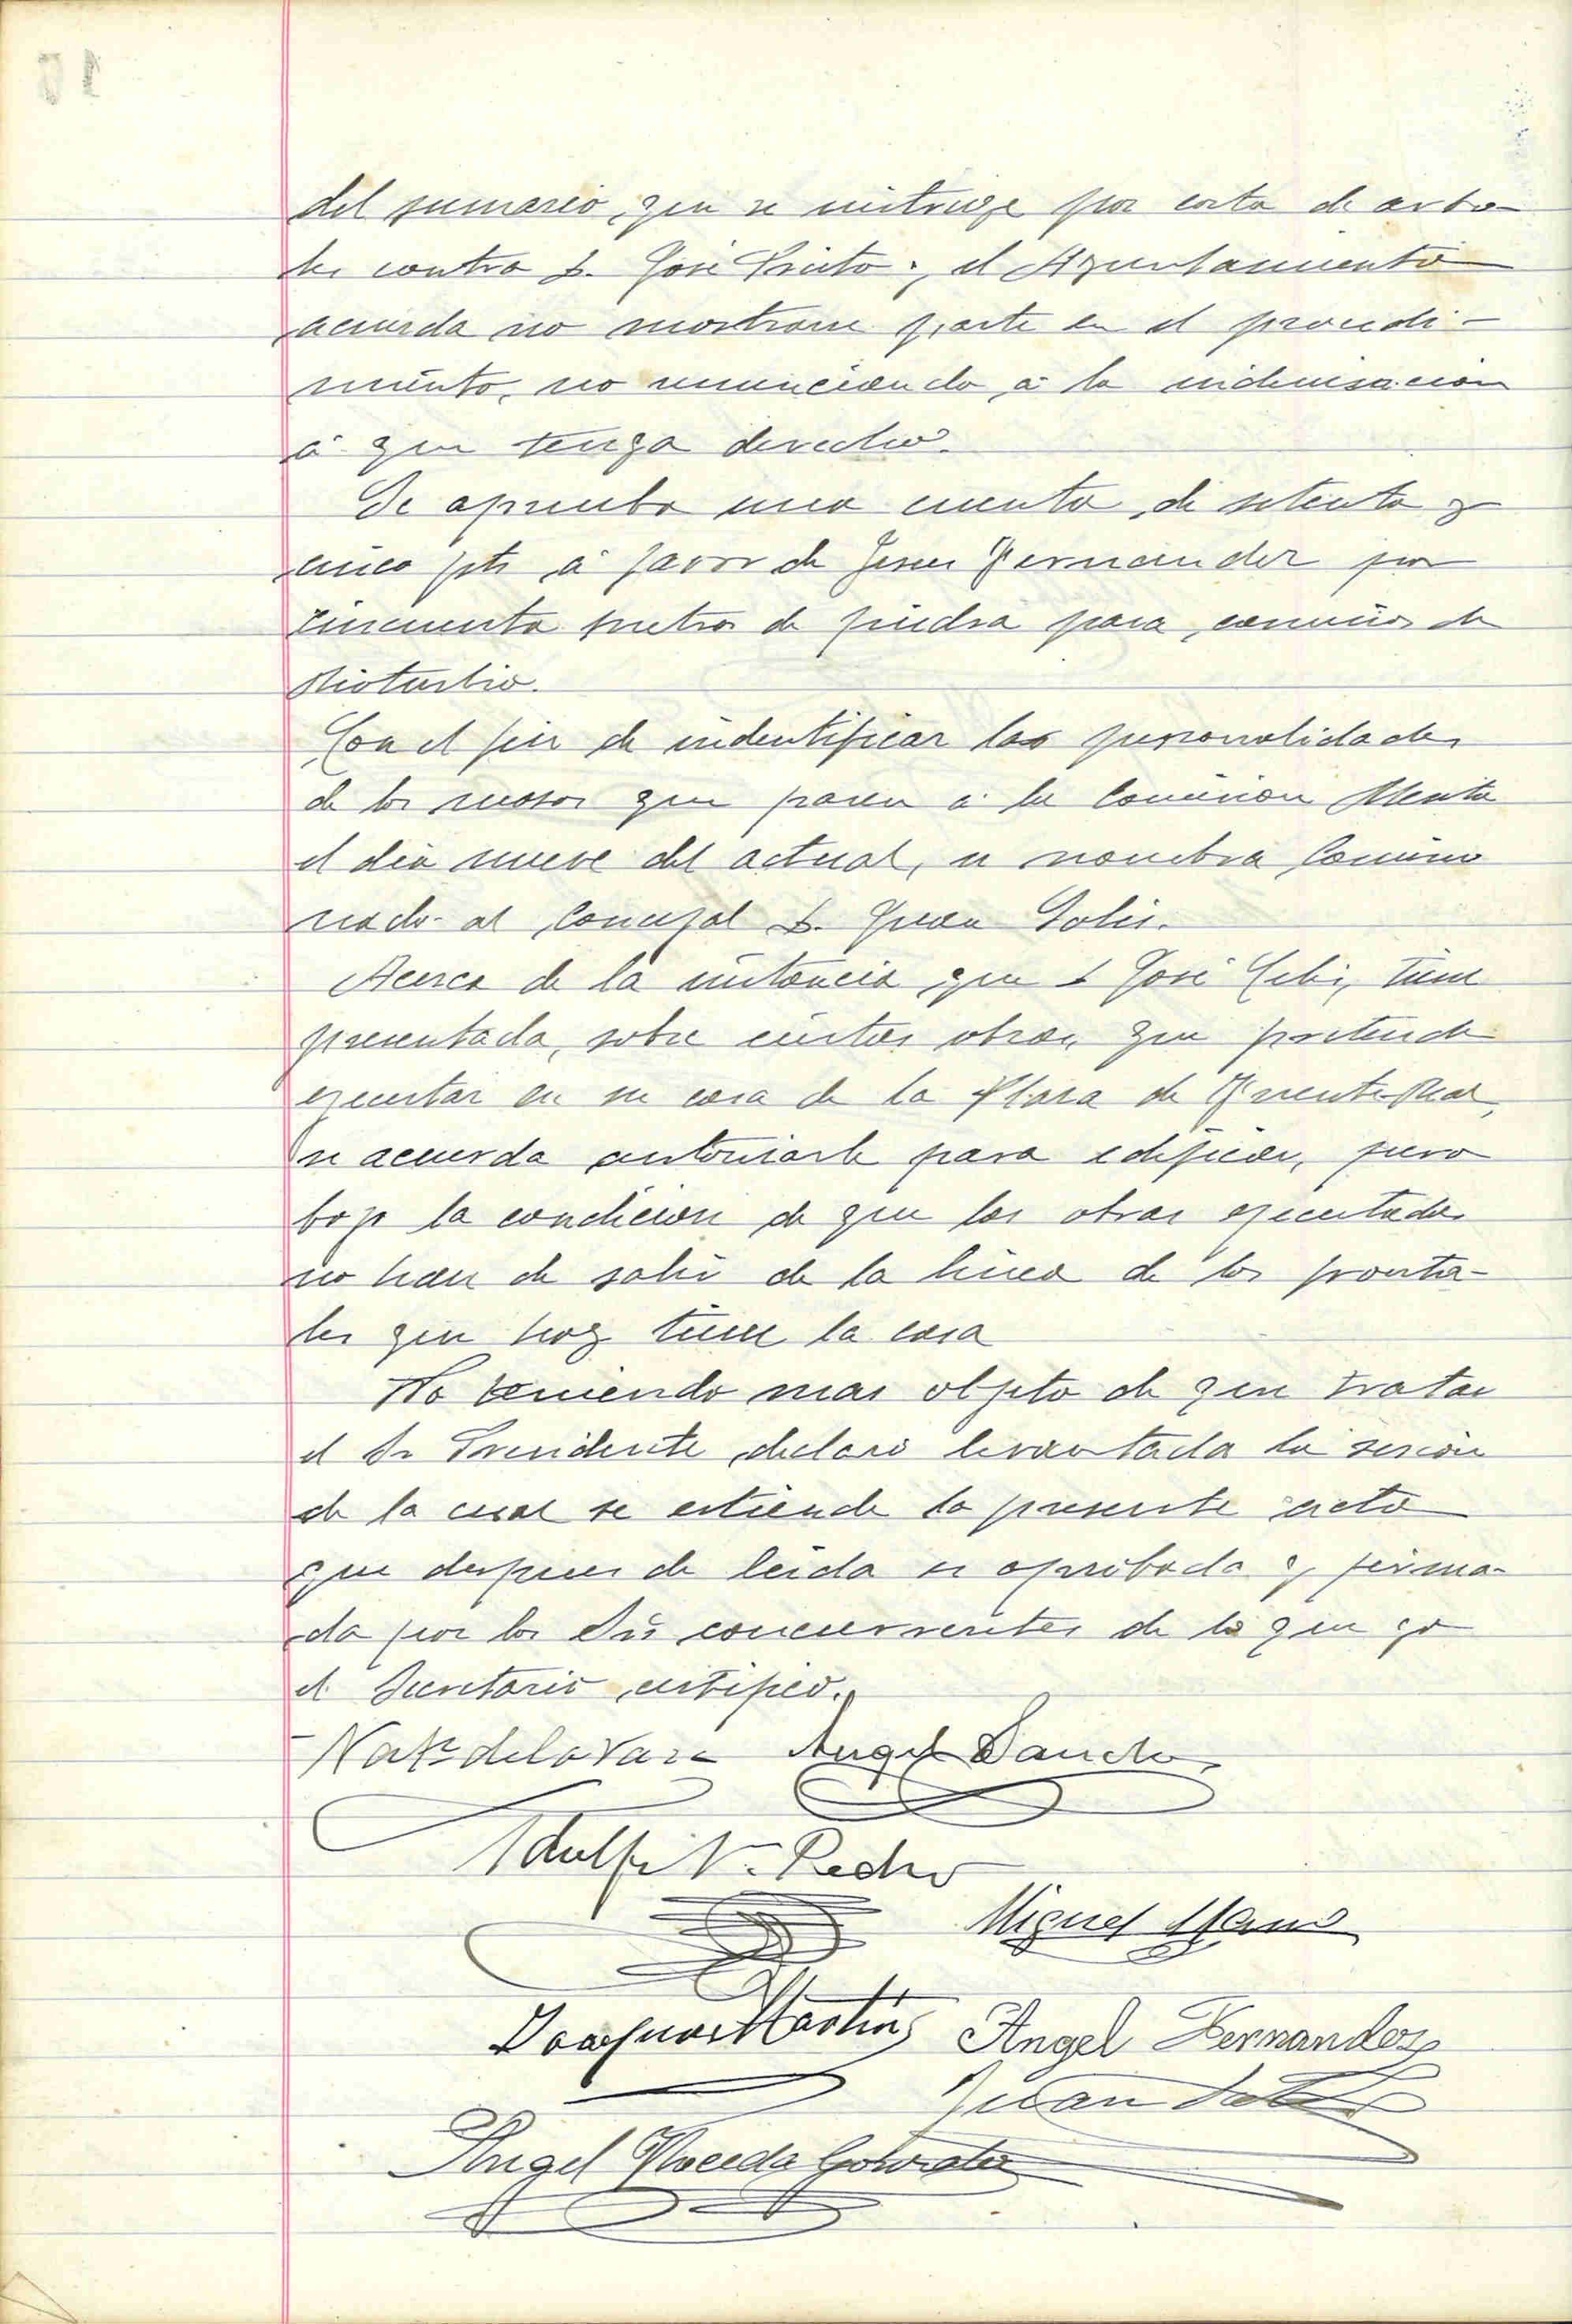 del sumario, que se instruye por corta de arbo-
les contra D. José Prieto, el Ayuntamiento
acuerda no mostrarse parte en el procedi-
miento, no renunciando á la indenisacion
á que tenga derecho.
Se aprueba una cuenta, de setenta y
cinco pts á favor de Jesus Fernandez por
cincuenta metros de piedra para caminos de
Rioturbio.
Con el fin de indentificar las personalidades
de los mosos que pasen á la Comision Mixta
el dia nueve del actual, se nombra Comisio
nado al Concejal D. Juan Solis.
Acerca de la instancia que D José tiene
presentada, sobre ciertas obras que pretende
ejecutar en su casa de la Plasa de
se acuerda autorisarle para edificar, pero
bajo la condicion de que las obras ejecutadas
no han de salir de la linea de los fronta-
les que hoy tiene la casa
No teniendo mas objeto de que tratar
el Sr Presidente declaró levantada la sesion
de la cual se estiende la presente acta
que despues de leida es aprobada y firma-
da por los Srs concurrentes de lo que yo
el Secretario certifico.
Angel Sancho
Adolfo V. Pedro
Miguel Llano
Joaquin Martinez Angel Fernandez
Juan Solis
Angel